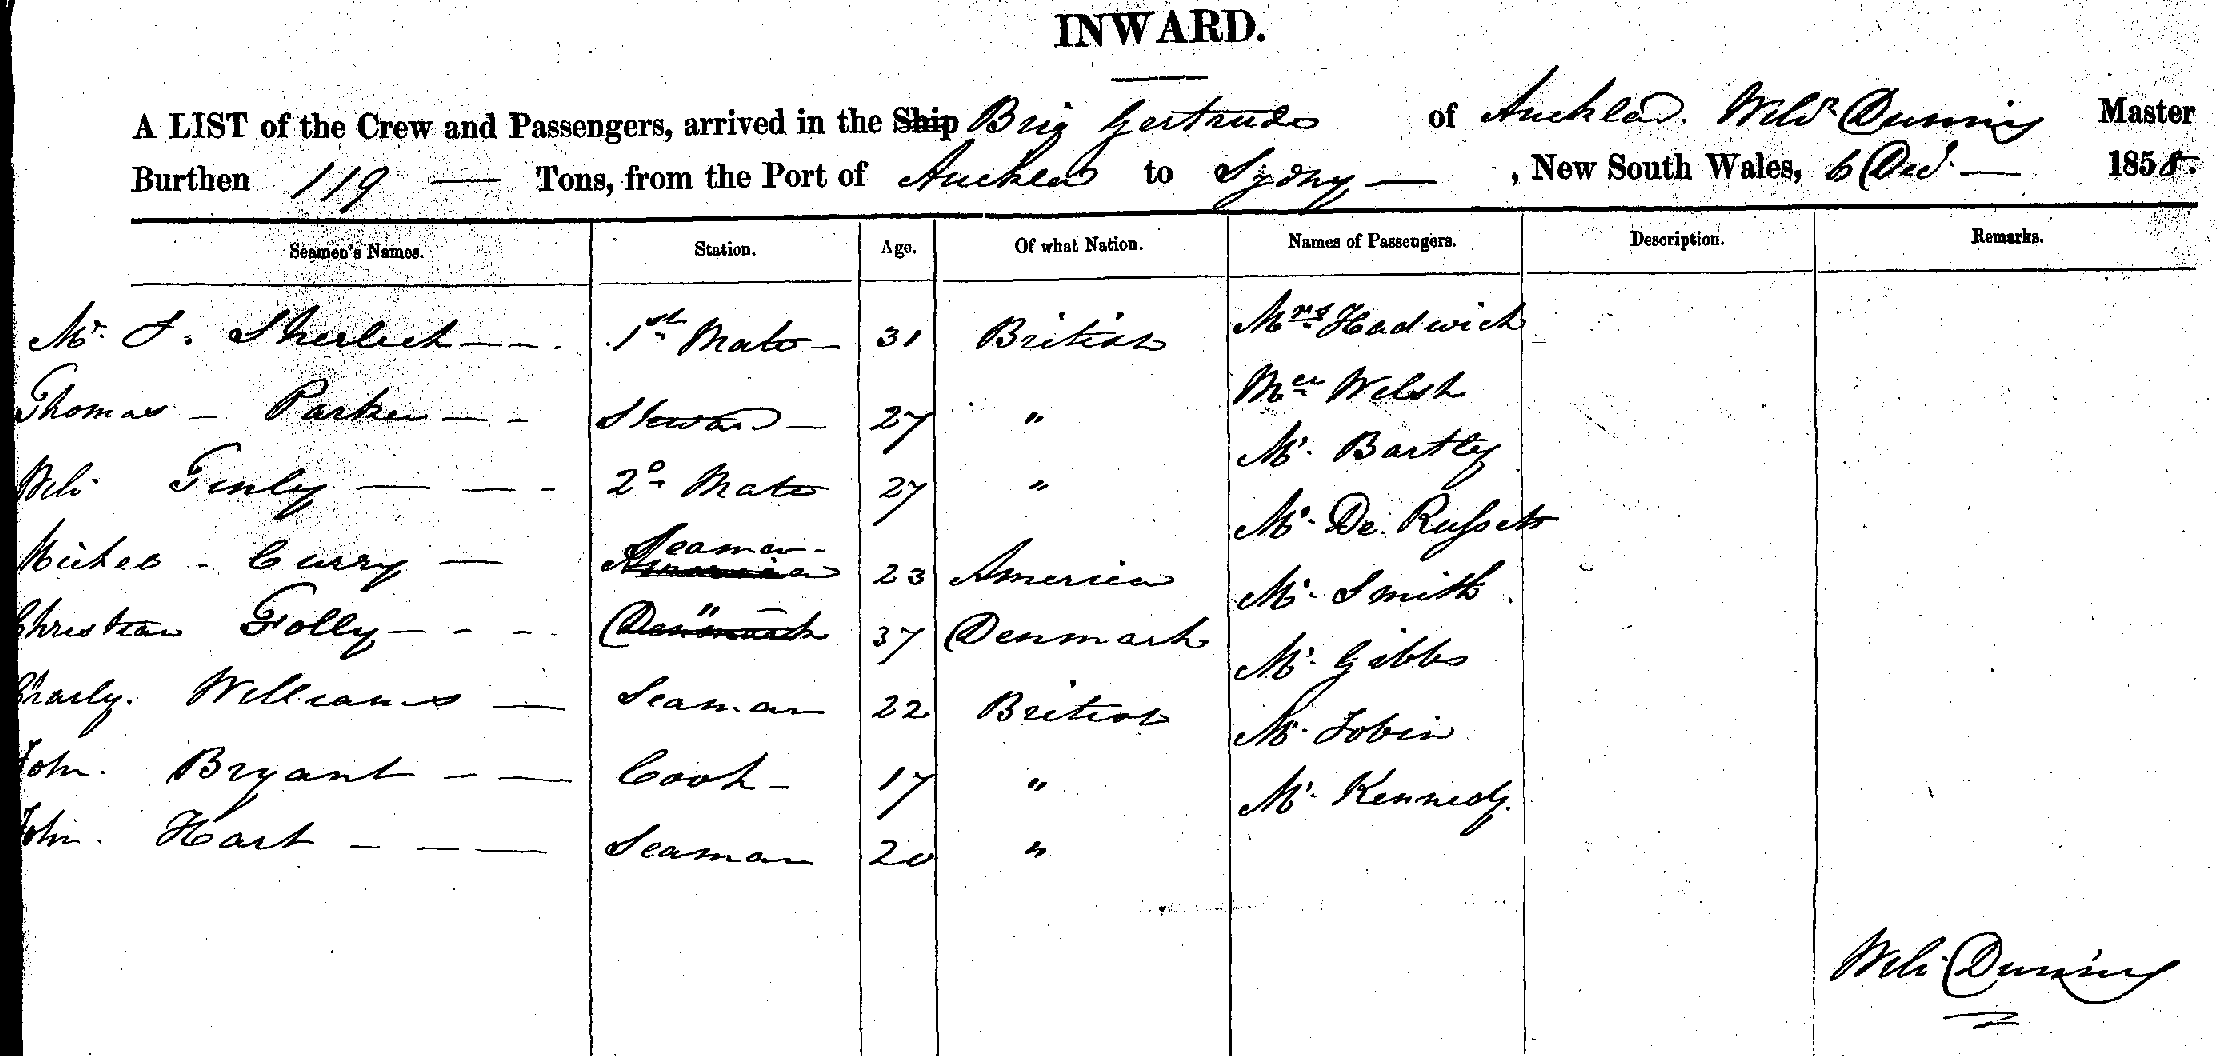 INWARD.
A LIST of the Crew and Passengers, arrived in the Ship Brig Gertrude of Aucklad. Willm Dunning Master
Burthen 119 — Tons, from the Port of Aucklad to Sydny — , New South Wales, 6 Decr — 1858.
Seamen's Names. Station. Age. Of what Nation. Names of Passengers. Description. Remarks.
Mr. J. Sherlock — — . 1st Mate — 31 British Mrs Hadwick
Thomas — Parker — — Steward — 27 " Welsh
Finly — — - 2d Mate 27 " Mr. Bartley
Seaman -
Michel - Curry — 23 America Mr. De Russett
Christian Folly — - - " Denmark 37 Denmark Mr. Smith
Charly. Williams — Seaman 22 British Mr. Gibbs
John. Bryant — — Cook - 17 " Mr. Tobin
John. Hart - — — Seaman 20 " Mr. Kennedy.
Dunning